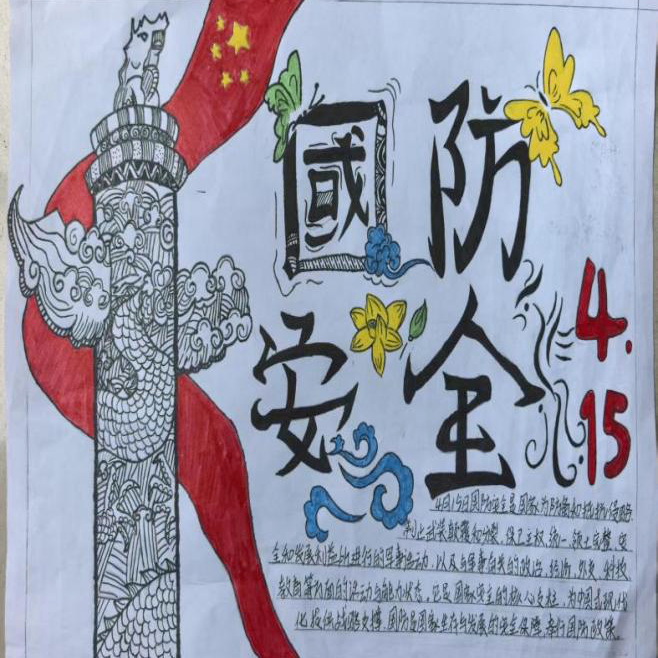 國防
安全
4.15
4月15日国防安全是国家为防备和抵抗侵略,
制止武装颠覆和分裂,保卫主权、统一、领土完整、安
全和发展利益所进行的军事活动,以及与军事有关的政治、经济、外交、科技
教育等方面的活动与能力状态,它是国家安全的核心支柱,为中国式现代
化提供战略支撑,国防是国家生存与发展的安全保障,奉行国防政策。